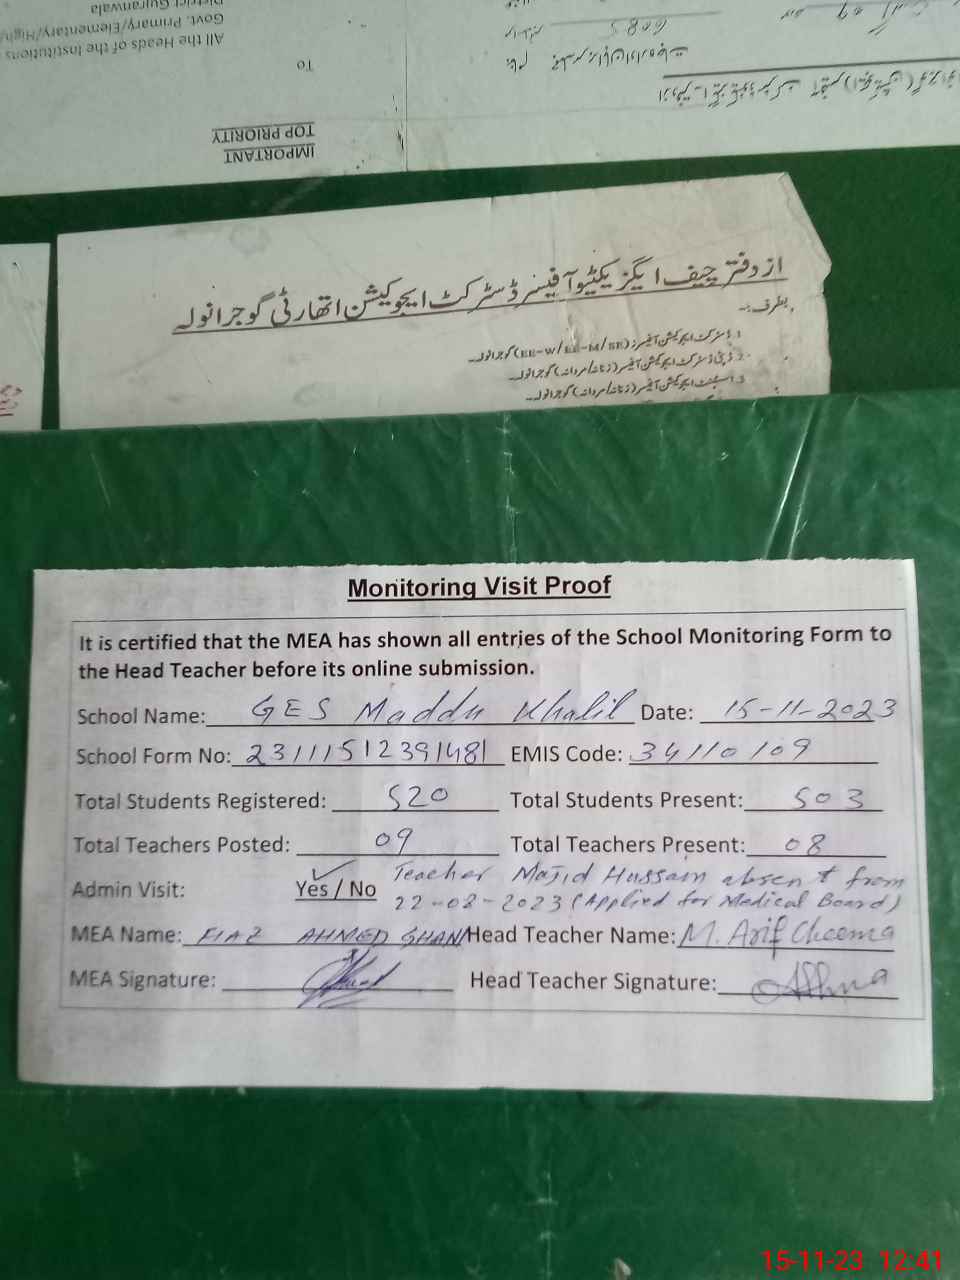 IMPORTANT
TOP PRIORITY
To
All the Heads of the Institutions
Govt. Primary/Elementary/High/
District Gujranwala
6085
از دفتر چیف ایگزیکٹیو آفیسر ڈسٹرکٹ ایجوکیشن اتھارٹی گوجرانولہ
بطرف:۔
1۔ڈسٹرکٹ ایجوکیشن آفیسرز (EE-W/EE-M/SE) گوجرانولہ۔
2۔ڈپٹی ڈسٹرکٹ ایجوکیشن آفیسرز (زنانہ/مردانہ) گوجرانولہ۔
3۔اسسٹنٹ ایجوکیشن آفیسرز (زنانہ/مردانہ) گوجرانولہ۔
Monitoring Visit Proof
It is certified that the MEA has shown all entries of the School Monitoring Form to
the Head Teacher before its online submission.
School Name: GES Maddu Khalil Date: 15-11-2023
School Form No: 23111512391481 EMIS Code: 34110109
Total Students Registered: 520 Total Students Present: 503
Total Teachers Posted: 09 Total Teachers Present: 08
Admin Visit: Yes / No Teacher Majid Hussain absent from
22-02-2023 (Applied for Medical Board)
MEA Name: FIAZ AHMED GHANI Head Teacher Name: M. Arif Cheema
MEA Signature: Head Teacher Signature:
15-11-23 12:41